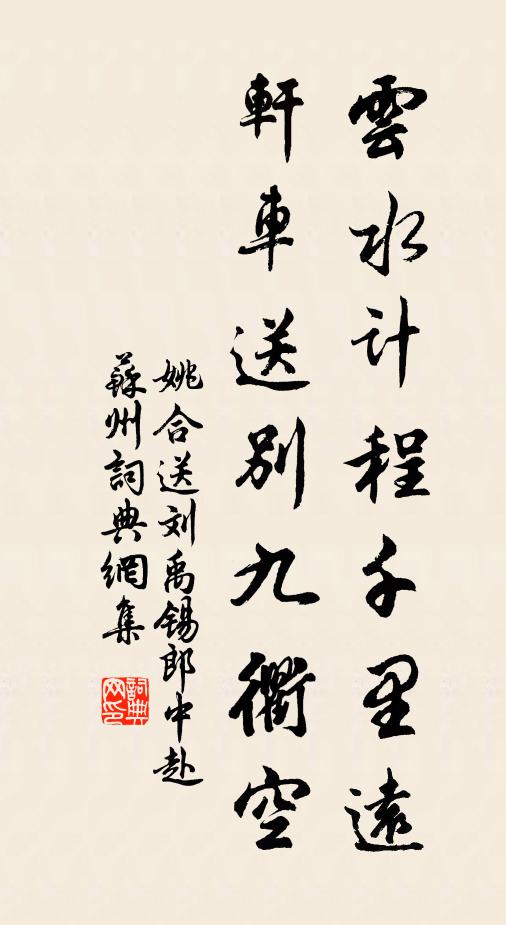 雲水计程千里遠
軒車送别九衢空
姚合送刘禹锡郎中赴
蘇州詞典網集
詞典网印